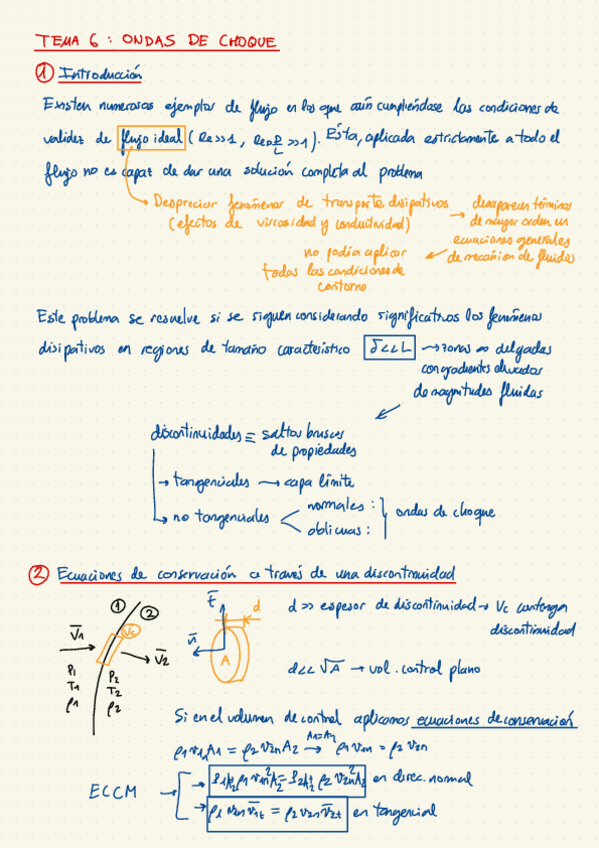 TEMA 6: ONDAS DE CHOQUE
① Introducción
Existen numerosos ejemplos de flujo en los que aún cumpliéndose las condiciones de
validez de flujo ideal (Re>>1, RePr >>1). Ésta, aplicada estrictamente a todo el
flujo no es capaz de dar una solución completa al problema
Despreciar fenómenos de transporte disipativos
(efectos de viscosidad y conductividad)
→ desaparecen términos
de mayor orden en
ecuaciones generales
de mecánica de fluidos
no podía aplicar
todas las condiciones de
contorno
Este problema se resuelve si se siguen considerando significativos los fenómenos
disipativos en regiones de tamaño característico δ<<L → zonas delgadas
con gradientes elevados
de magnitudes fluidas
discontinuidades ≡ saltos bruscos
de propiedades
→ tangenciales → capa límite
→ no tangenciales < normales :
oblicuas : } ondas de choque
② Ecuaciones de conservación a través de una discontinuidad
① ② Vc
V̅1 → V̅2
P1 T1 ρ1
P2 T2 ρ2
t̅ d
n̅ A
d >> espesor de discontinuidad → Vc contenga
discontinuidad
d<< √A → vol. control plano
Si en el volumen de control aplicamos ecuaciones de conservación
ρ1 v1n A1 = ρ2 v2n A2 → A1=A2 ρ1 v1n = ρ2 v2n
ECCM → en direc. normal
→ ρ1 v1n v̅1t = ρ2 v2n v̅2t en tangencial